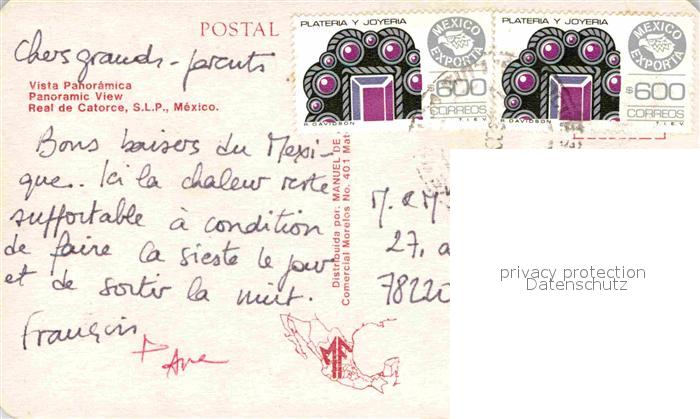 POSTAL
Chers grands-parents
Vista Panorámica
Panoramic View
Real de Catorce, S.L.P., México.
Bons baisers du Mexi-
que.. Ici la chaleur reste
suffortable à condition
de faire la sieste le jour
et de sortir la nuit.
François
Distribuida por: MANUEL DE
Comercial Morelos No. 401 Mat
PLATERIA Y JOYERIA
MEXICO
EXPORTA
$600
CORREOS
P. DAVIDSON T.I.E.V.
PLATERIA Y JOYERIA
MEXICO
EXPORTA
$600
CORREOS
P. DAVIDSON T.I.E.V.
M. & M
27, a
78220
privacy protection
Datenschutz